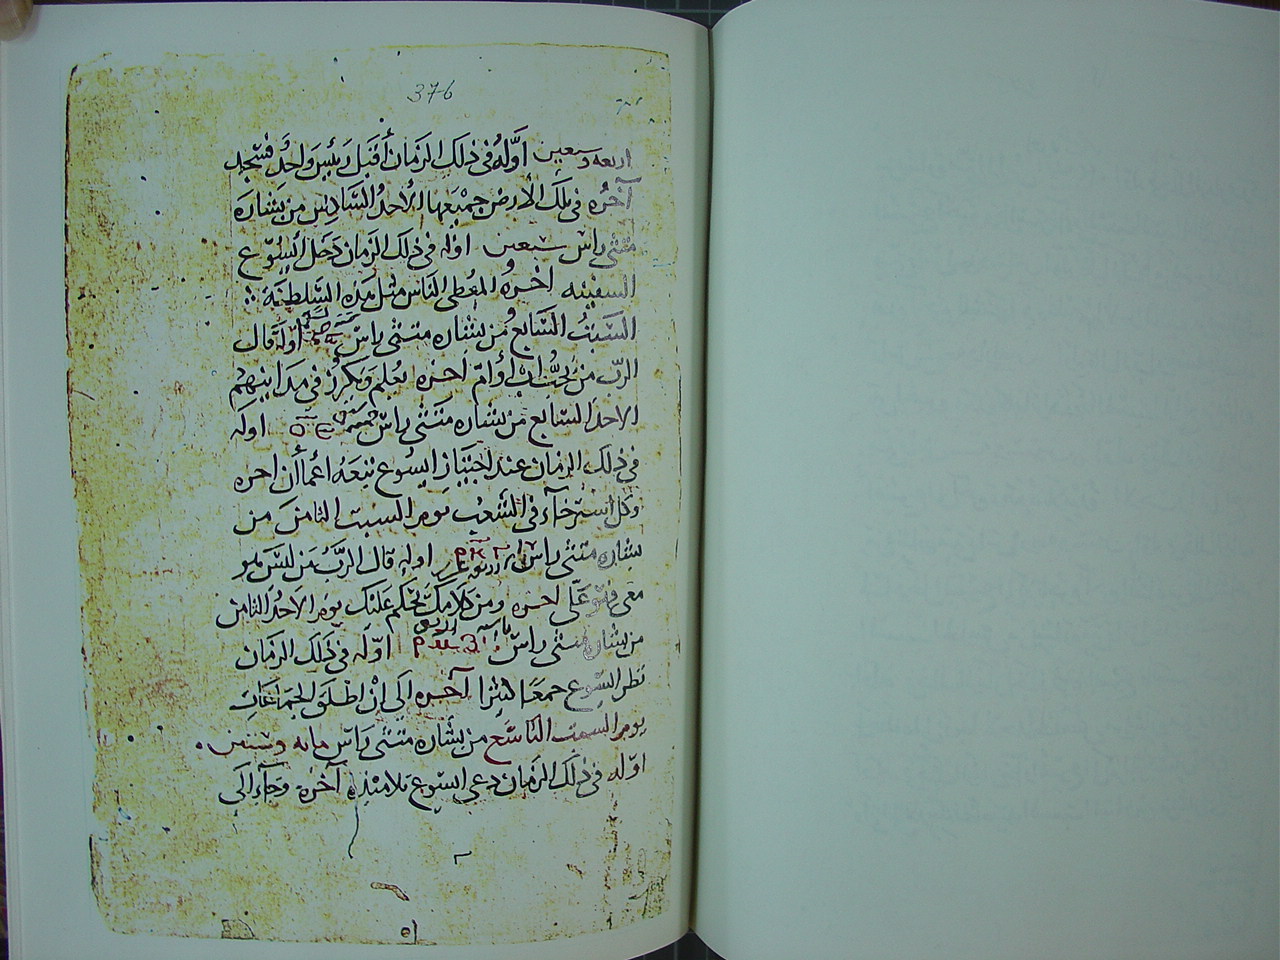 376
اربعه وسبعين اوّله في ذلك الزمان أقبل رئيس واحد فسجد
آخره في تلك الارض جميعها الأحد السادس من بشاره
متثي راس سبعين اوله في ذلك الزمان دخل ايسوع
السفينه اخره المعطي الناس مثل هذه السلطنة
السبت السابع من بشاره متثي راس اوله قال
الرب من يحب ابا أو امّ اخره يعلم ويكرز في مداينهم
الاحد السابع من بشاره متثي راس خمسه اوله
في ذلك الزمان عند اجتياز ايسوع تبعه اعماأن اخره
وكل استرخآء في الشعب يوم السبت الثامن من
بشاره متثي راس اوله قال الرّبّ من ليس هو
معي فهو عليّ اخره ومن كلامك تحكم عليك يوم الاحد الثامن
من بشاره متثي راس اوّله في ذلك الزمان
نظر ايسوع جمعًا كثيرا آخره الي انْ اطلق الجماعات
يوم السبت التاسع من بشاره متثي راس مايه وستين
اوّله في ذلك الزمان دعي ايسوع تلامتذه آخره وجآء الي